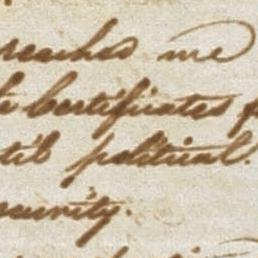 reaches me
Certificates
political.
security.